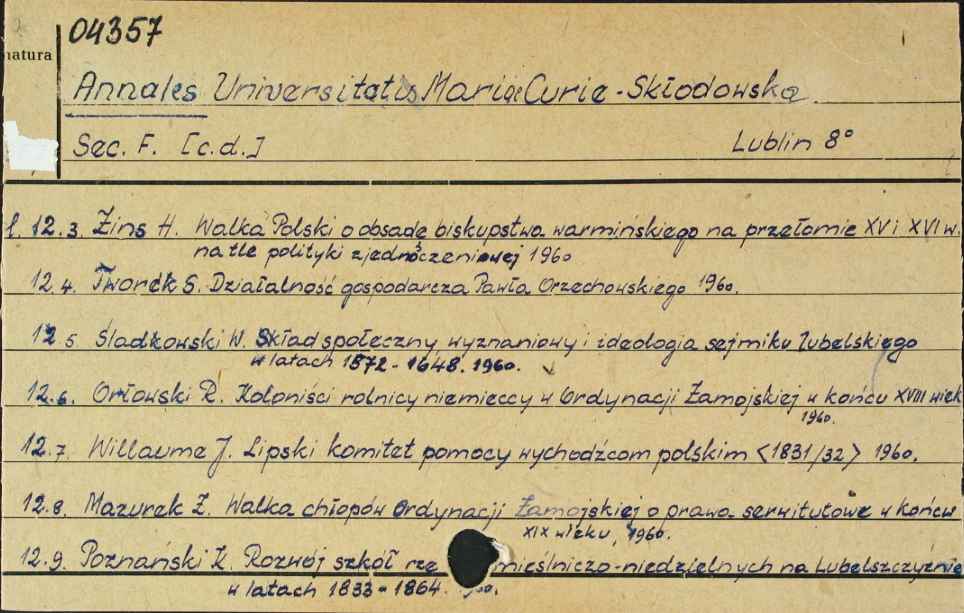 04357
natura
Annales Universitatis Mariae Curie-Skłodowska.
Sec. F. [c.d.] Lublin 8°
l. 12.3. Zins H. Walka Polski o obsadę biskupstwa warmińskiego na przełomie XV i XVI w.
na tle polityki zjednoczeniowej 1960
12.4. Tworek S. Działalność gospodarcza Pawła Orzechowskiego 1960.
12.5 Śladkowski W. Skład społeczny wyznaniowy i ideologia sejmiku lubelskiego
w latach 1572-1648. 1960.
12.6. Orłowski R. Koloniści rolnicy niemieccy w Ordynacji Zamojskiej w końcu XVIII wiek
1960.
12.7 Willaume J. Lipski komitet pomocy wychodźcom polskim <1831/32> 1960.
12.8. Mazurek Z. Walka chłopów Ordynacji Zamojskiej o prawa serwitutowe w końcu
XIX wieku, 1960.
12.9. Poznański K. Rozwój szkół rze mieślniczo-niedzielnych na Lubelszczyźnie
w latach 1833-1864.